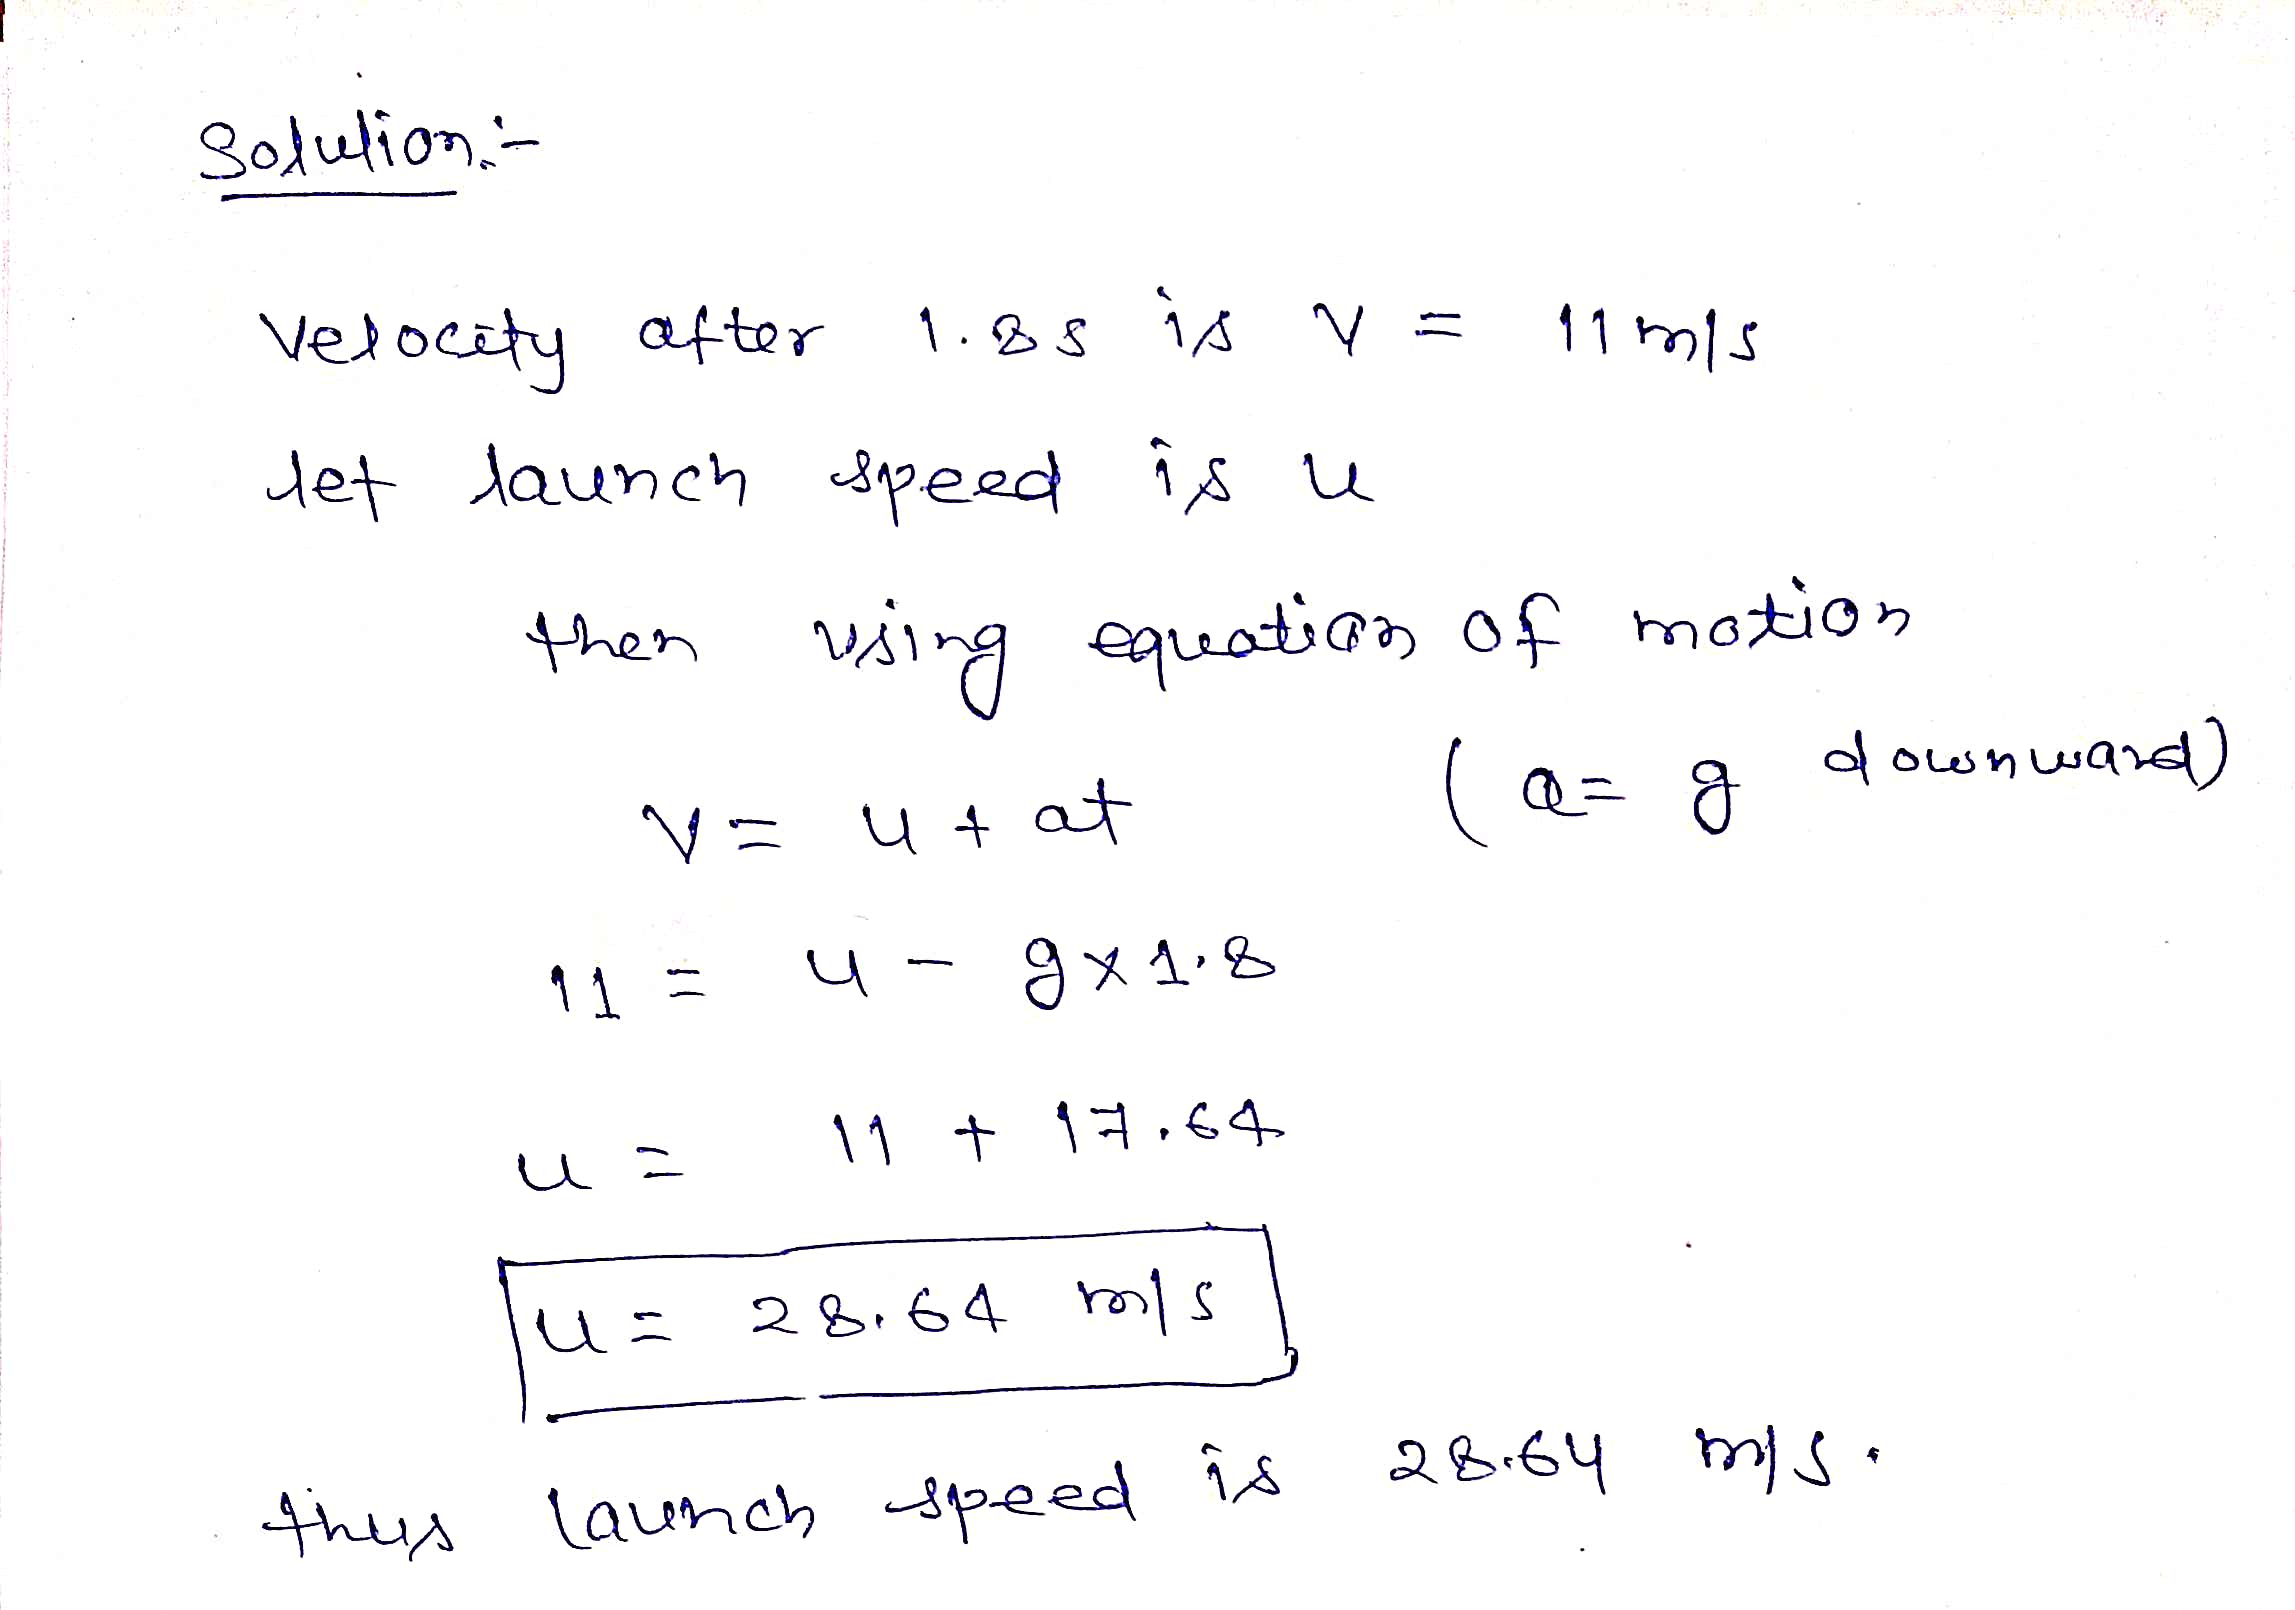 Solution:-
Velocity after 1.8s is v = 11 m/s
let launch speed is u
then using equation of motion
v = u + at (a = g downward)
11 = u - g x 1.8
u = 11 + 17.64
u = 28.64 m/s
thus launch speed is 28.64 m/s.